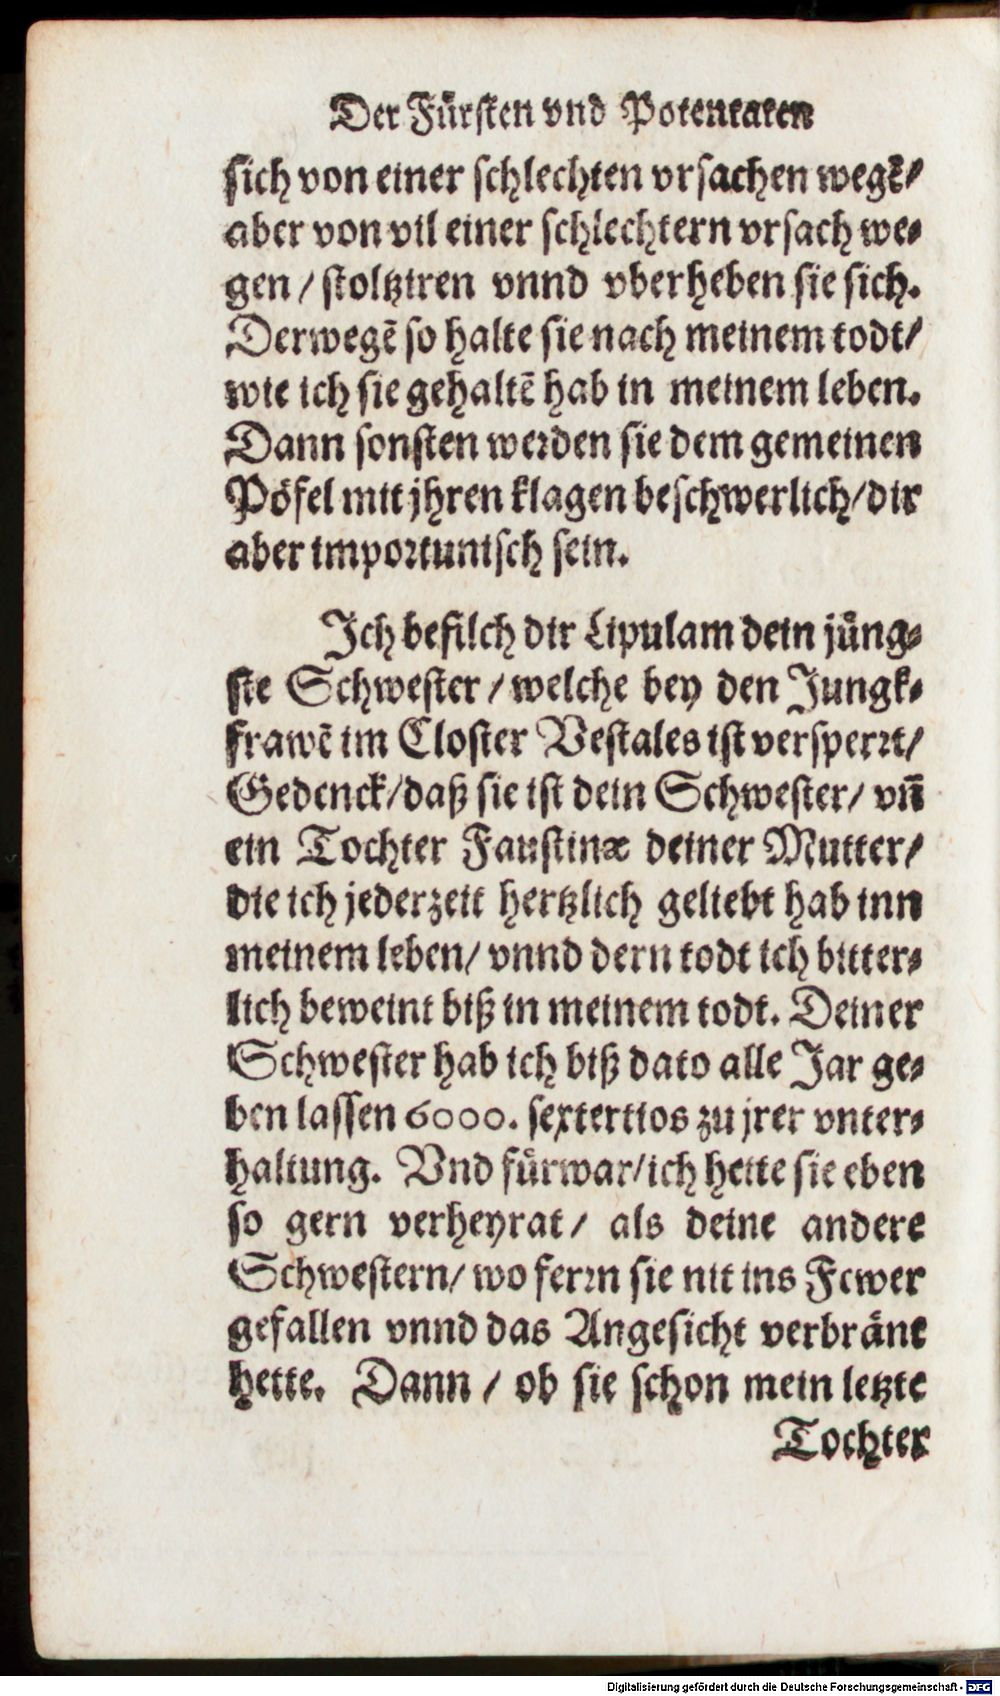 Der Fürsten vnd Potentaten
sich von einer schlechten vrsachen wegẽ/
aber von vil einer schlechtern vrsach we-
gen / stoltziren vnnd vberheben sie sich.
Derwegẽ so halte sie nach meinem todt/
wie ich sie gehaltẽ hab in meinem leben.
Dann sonsten werden sie dem gemeinen
Pöfel mit jhren klagen beschwerlich/dir
aber importunisch sein.
Ich befilch dir Lipulam dein jüng-
ste Schwester / welche bey den Jungk-
frawẽ im Closter Vestales ist versperrt/
Gedenck/daß sie ist dein Schwester/ vñ
ein Tochter Faustinæ deiner Mutter/
die ich jederzeit hertzlich geliebt hab inn
meinem leben/ vnnd dern todt ich bitter-
lich beweint biß in meinem todt. Deiner
Schwester hab ich biß dato alle Jar ge-
ben lassen 6000. sextertios zu jrer vnter-
haltung. Vnd fürwar/ich hette sie eben
so gern verheyrat/ als deine andere
Schwestern/ wo ferrn sie nit ins Fewer
gefallen vnnd das Angesicht verbränt
hette. Dann / ob sie schon mein letzte
Tochter
Digitalisierung gefördert durch die Deutsche Forschungsgemeinschaft - DFG